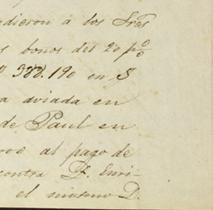 dieron á los Sres
bonos del 20 p%
388.190 en $
a aviada en
de Paul en
al pago de
contra D. Enri-
el mismo D.